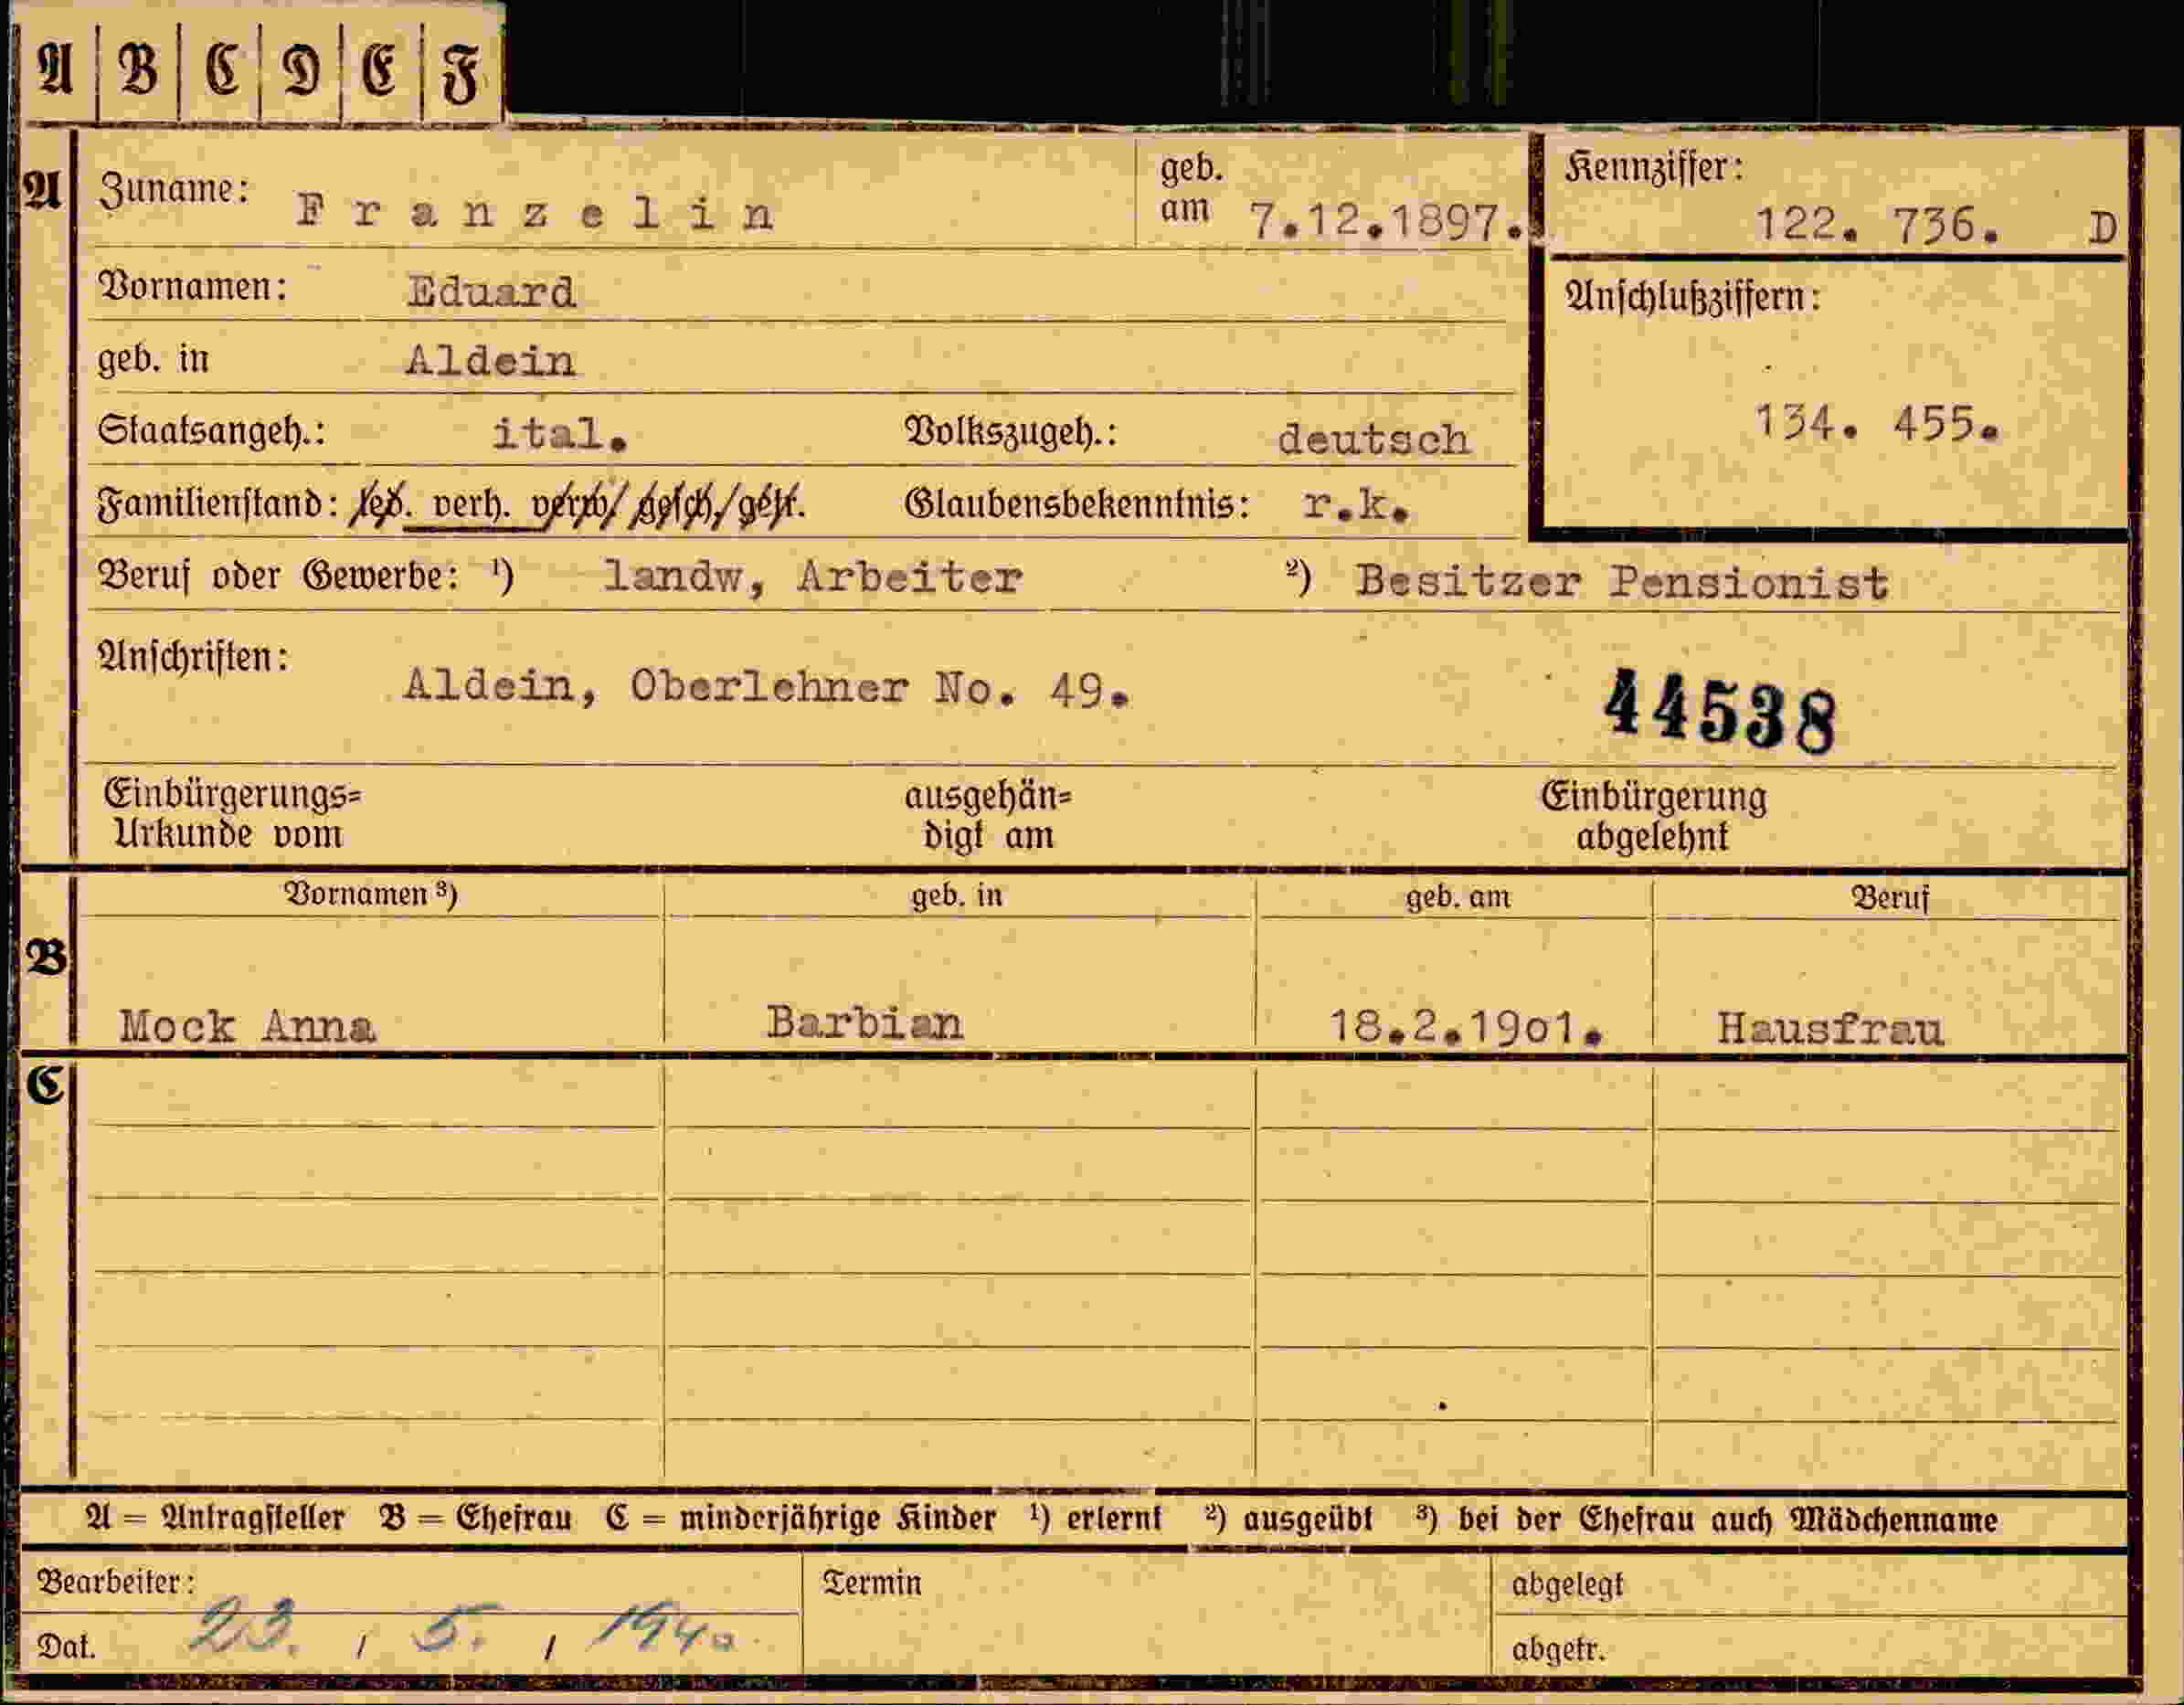 A B C D E F
A Zuname: Franzelin geb. am 7.12.1897. Kennziffer: 122. 736. D
Vornamen: Eduard Anschlußziffern:
geb. in Aldein
Staatsangeh.: ital. Volkszugeh.: deutsch 134. 455.
Familienstand: led. verh. verw. gesch. getr. Glaubensbekenntnis: r.k.
Beruf oder Gewerbe: ¹) landw, Arbeiter ²) Besitzer Pensionist
Anschriften: Aldein, Oberlehner No. 49. 44538
Einbürgerungs= ausgehän= Einbürgerung
Urkunde vom digt am abgelehnt
Vornamen ³) geb. in geb. am Beruf
B
Mock Anna Barbian 18.2.19o1. Hausfrau
C
A = Antragsteller B = Ehefrau C = minderjährige Kinder ¹) erlernt ²) ausgeübt ³) bei der Ehefrau auch Mädchenname
Bearbeiter: Termin abgelegt
Dat. 23. / 5. / 1940 abgetr.